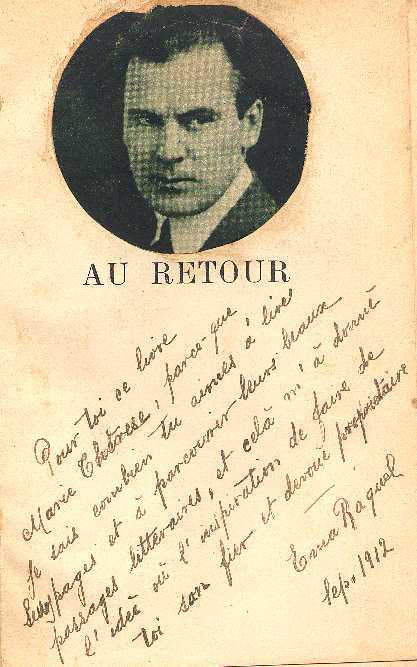 AU RETOUR
Pour toi ce livre
Marie Thérèse, parce-que
je sais combien tu aimes à lire
pages et à parcourir leurs beaux
passages littéraires, et celà m'à donné
l'idée où l'inspiration de faire de
toi son fier et dévoué propriétaire
Ema Raquel
Sep. 1912